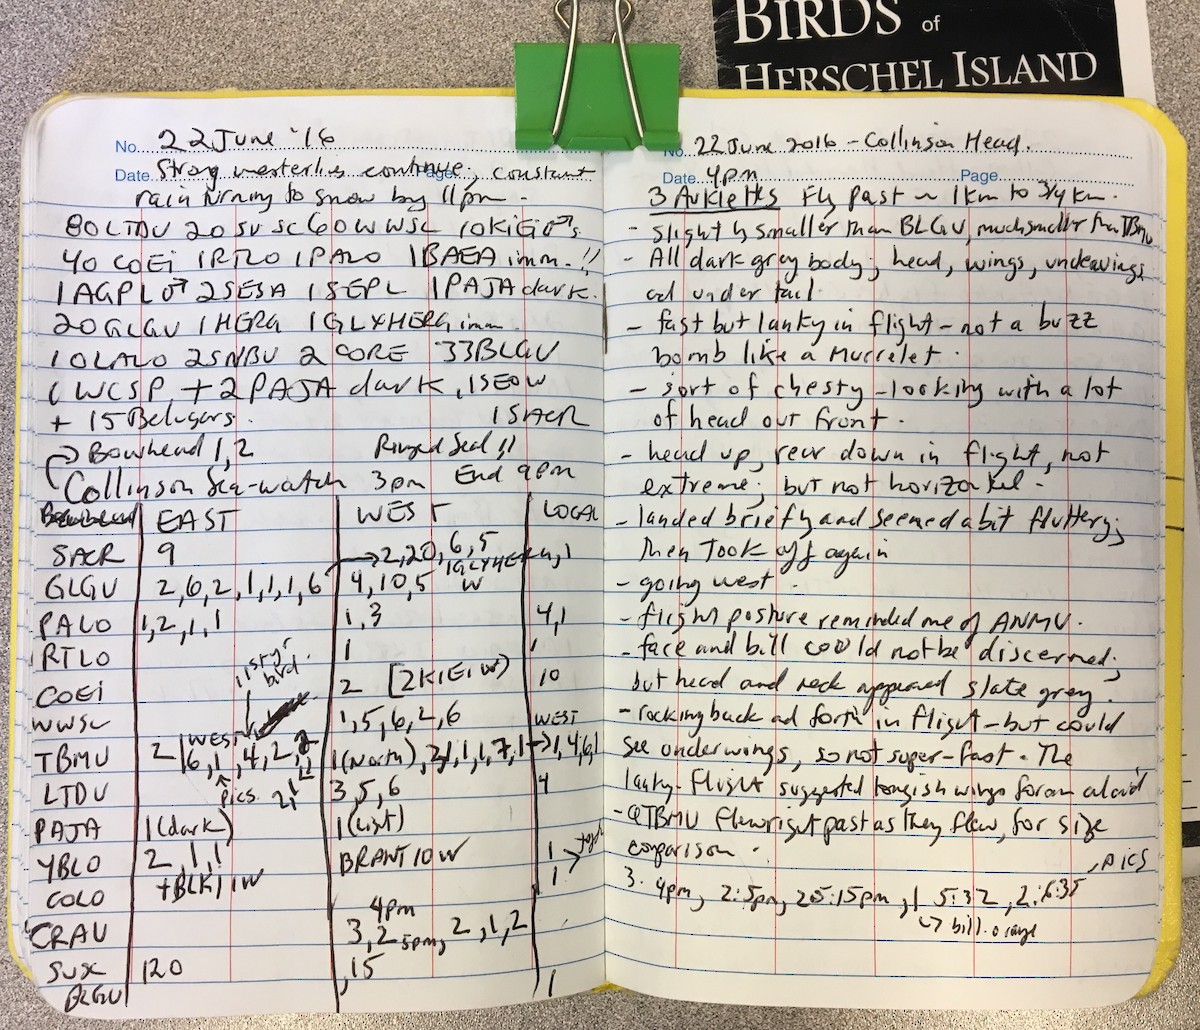 BIRDS of
HERSCHEL ISLAND
No. 22 June '16
Date Strong westerlies continue, constant
Page
rain turning to snow by 11pm.
80 LTDU 20 SUSC 60 WWSC 10 KIEI ♂s
40 COEI 1 RTLO 1 PALO 1 BAEA imm. !!
1 AGPL ♂ 2 SESA 1 SEPL 1 PAJA dark.
20 GLGU 1 HERG 1 GLXHERG imm.
10 LALO 2 SNBU 2 CORE 33 BLGU
1 WCSP, + 2 PAJA dark, 1 SEOW
+ 15 Belugas. 1 SACR
→ Bowhead 1, 2 Ringed Seal !!
Collinson Sea-watch 3pm End 9pm
EAST WEST LOCAL
SACR 9 → 2, 20, 6, 5
1 GLXHERG W 4, 1
GLGU 2, 6, 2, 1, 1, 1, 6 4, 10, 5
PALO 1, 2, 1, 1 1, 3 4, 1
RTLO 1 1
1 1st yr bird.
COEI 2 [2 KIEI W) 10
WWSC 1, 5, 6, 2, 6
WEST WEST
TBMU 2 | 6, 1, 4, 2, 2 1 (North), 2, 1, 1, 1, 7, 1 → 1, 4, 6, 1
↑ pics. 2, 1
LTDU 3, 5, 6 4
PAJA 1 (dark) 1 (light)
YBLO 2, 1, 1 BRANT 10 W 1
COLO + BLKI 1 W 1
4pm
CRAU 3, 2 5pm, 2, 1, 2
SUSC 120 , 15
BLGU 1
No. 22 June 2016 - Collinson Head.
Date 4pm Page
3 Auklets Fly past ~ 1km to 3/4 km.
- slightly smaller than BLGU, much smaller than TBMU
- All dark grey body; head, wings, underwings
ad under tail.
- fast but lanky in flight - not a buzz
bomb like a Murrelet.
- sort of chesty-looking with a lot
of head out front.
- head up, rear down in flight, not
extreme; but not horizontal.
- landed briefly and seemed a bit fluttery;
then Took off again
- going west.
- flight posture reminded me of ANMU.
- face and bill could not be discerned;
but head and neck appeared slate grey.
- rocking back ad forth in flight - but could
see underwings, so not super-fast. The
lanky-flight suggested longish wings for an alcid
- @TBMU flew right past as they flew, for size
comparison.
, pics
3. 4pm, 2: 5pm, 2 5:15pm, 1 5:32, 2: 6:35
↳ bill orange